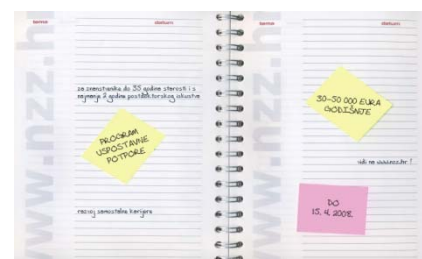 www.nzz.h
za znanstvenike do 35 godina starosti i s
najmanje 2 godine postdoktorskog iskustva
PROGRAM
USPOSTAVNE
POTPORE
razvoj samostalne karijere
www.nzz.h
30-50 000 EURA
GODIŠNJE
DO
15. 4. 2008.